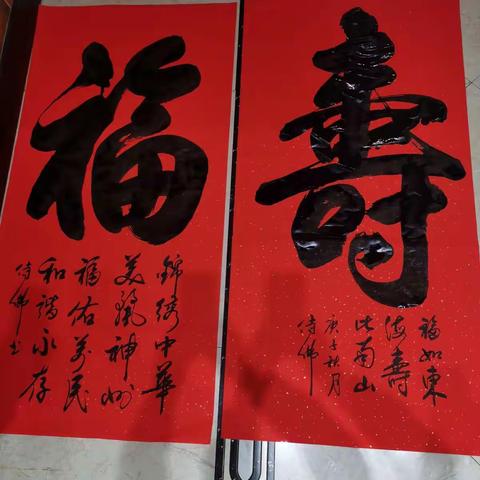 福
錦绣中華
美麗神州
福佑萬民
和谐永存
侍佛书
壽
福如東
海壽
比南山
庚子秋月
侍佛